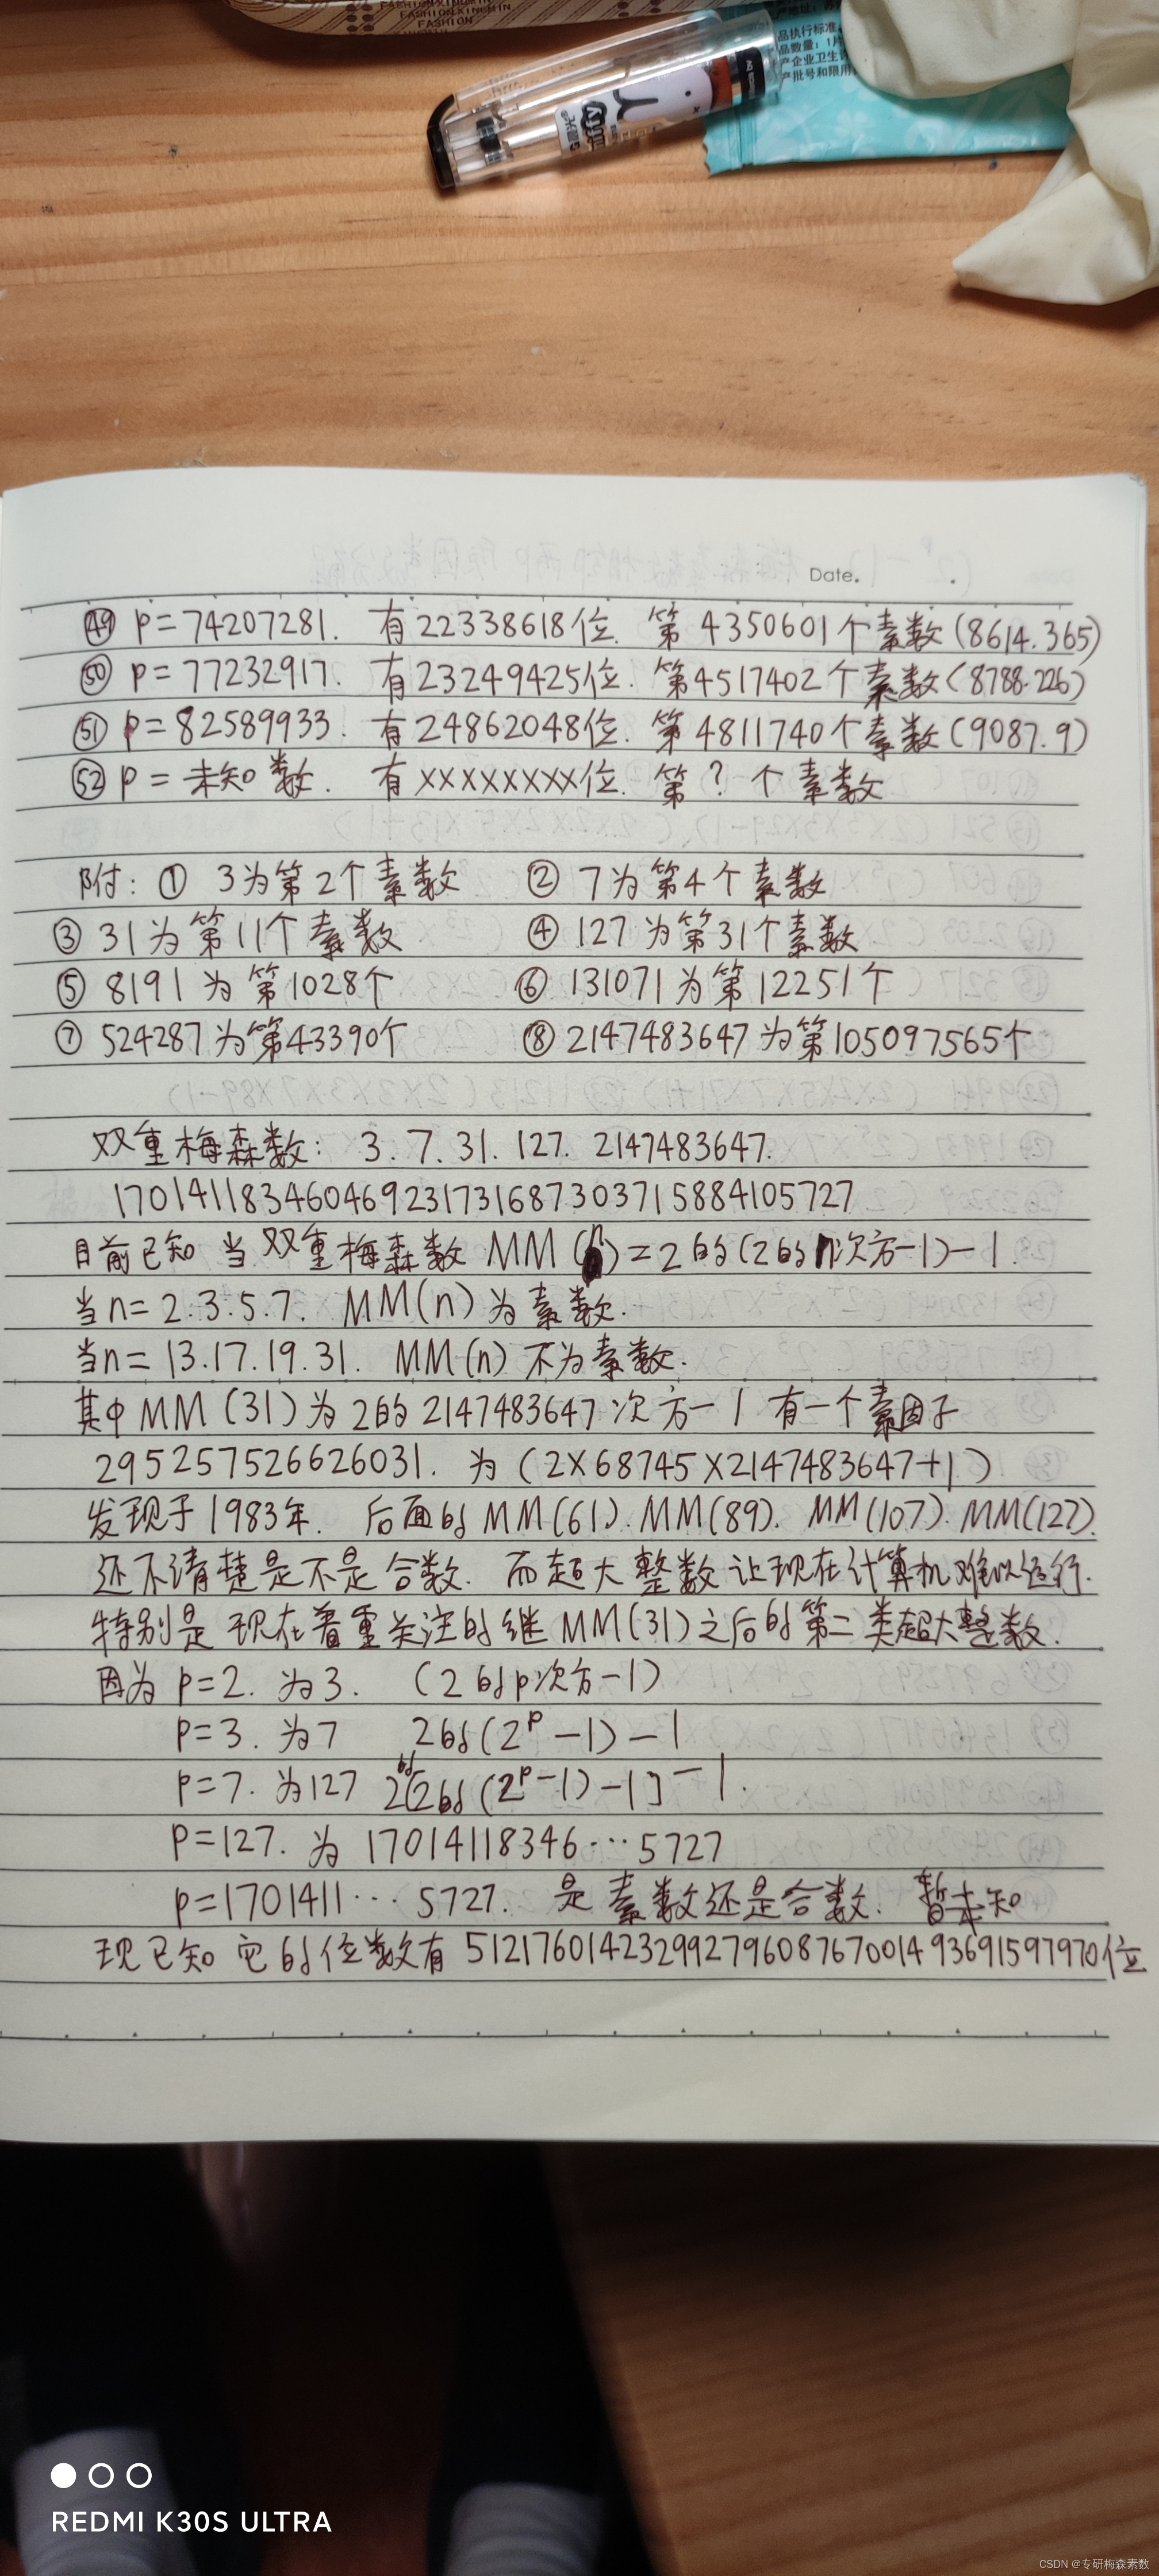 FASHION
品执行标准
品数量：1片
产企业卫生许
产批号和限用
Date.
㊾ p=74207281. 有22338618位. 第4350601个素数(8614.365)
㊿ p=77232917. 有23249425位. 第4517402个素数(8788.226)
(51) p=82589933. 有24862048位. 第4811740个素数(9087.9)
(52) p=未知数. 有××××××××位. 第?个素数
附: ① 3为第2个素数 ② 7为第4个素数
③ 31为第11个素数 ④ 127为第31个素数
⑤ 8191为第1028个 ⑥ 131071为第12251个
⑦ 524287为第43390个 ⑧ 2147483647为第105097565个
双重梅森数: 3.7.31.127.2147483647.
170141183460469231731687303715884105727
目前已知 当双重梅森数 MM(n)=2的(2的n次方-1)-1.
当n=2.3.5.7. MM(n)为素数.
当n=13.17.19.31. MM(n)不为素数.
其中MM(31)为2的2147483647次方-1 有一个素因子
295257526626031. 为(2×68745×2147483647+1)
发现于1983年. 后面的MM(61).MM(89).MM(107).MM(127).
还不清楚是不是合数. 而超大整数让现在计算机难以运行.
特别是现在着重关注的继MM(31)之后的第二类超大整数.
因为p=2. 为3. (2的p次方-1)
p=3. 为7 2的(2ᵖ-1)-1
p=7. 为127 2的[2的(2ᵖ-1)-1]-1.
p=127. 为17014118346…5727
p=1701411…5727. 是素数还是合数. 暂未知
现已知它的位数有51217601423299279608767001493691597970位
REDMI K30S ULTRA
CSDN @专研梅森素数